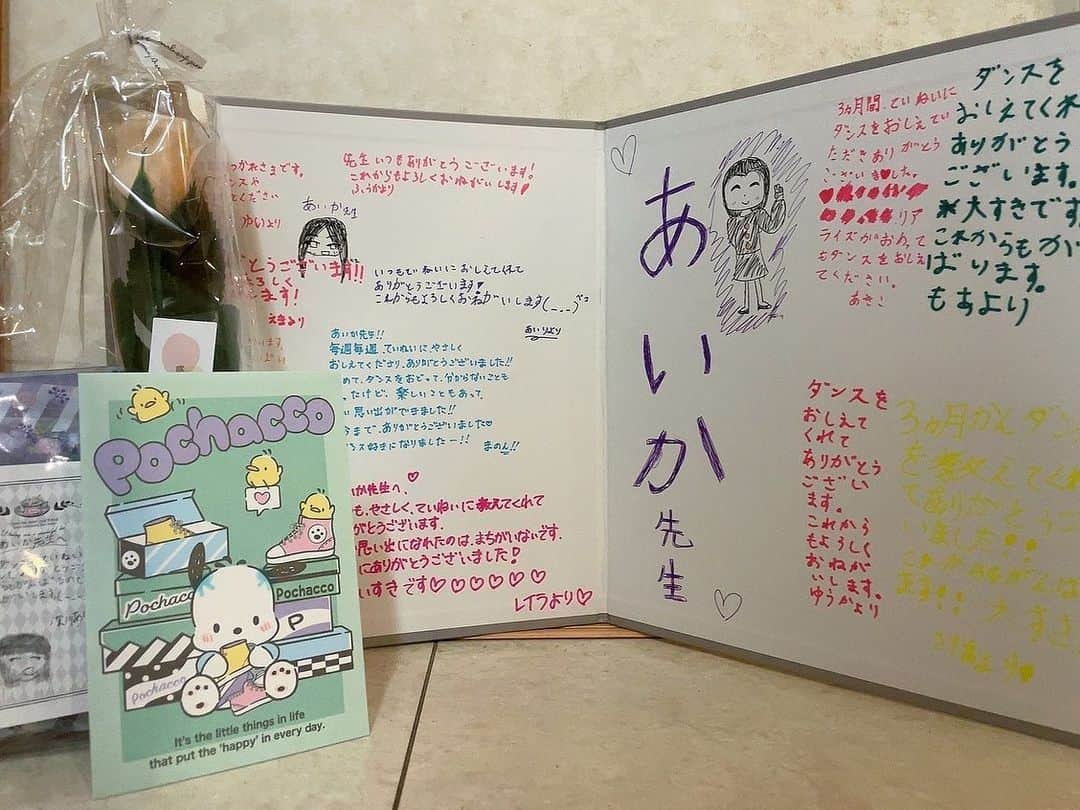 かれさまです。
ンスや
ください
ゆいより
先生いつもありがとうございます!
これからもよろしくおねがいします♥
ふうかより
あいか先生
とうございます!!
ろしく
ます!
えまより
いつもていねいにおしえてくれて
ありがとうございます♥
これからもよろしくおねがいします(_ _ _)
あいりより
あいか先生!!
毎週毎週、ていねいに、やさしく
おしえてくださり、ありがとうございました!!
めて、ダンスをおどって、分からないことも
たけど、楽しいこともあって、
い思い出ができました!!
今まで、ありがとうございました♡
ス好きになりましたー!!
まのん!!
か先生へ、
も、やさしく、ていねいに教えてくれて
がとうございます。
思い出になれたのは、まちがいないです。
にありがとうございました!
いすきです♡♡♡♡♡♡
レイラより♡
あいか先生
3ヵ月間、ていねいに
ダンスをおしえてい
ただきありがとう
ございました。
リア
ライズがおわって
もダンスをおしえ
てください。
あきこ
ダンスを
おしえてくれ
ありがとう
ございます。
大すきです
これからもが
ばります。
もあより
ダンスを
おしえて
くれて
ありがとう
ござい
ます。
これから
もよろしく
おねが
いします。
ゆうかより
3ヵ月かんダン
を教えてくれ
てありがとうご
いました!!
Pochacco
Pochacco
Pochacco
P
Pochacco
It's the little things in life
that put the 'happy' in every day.